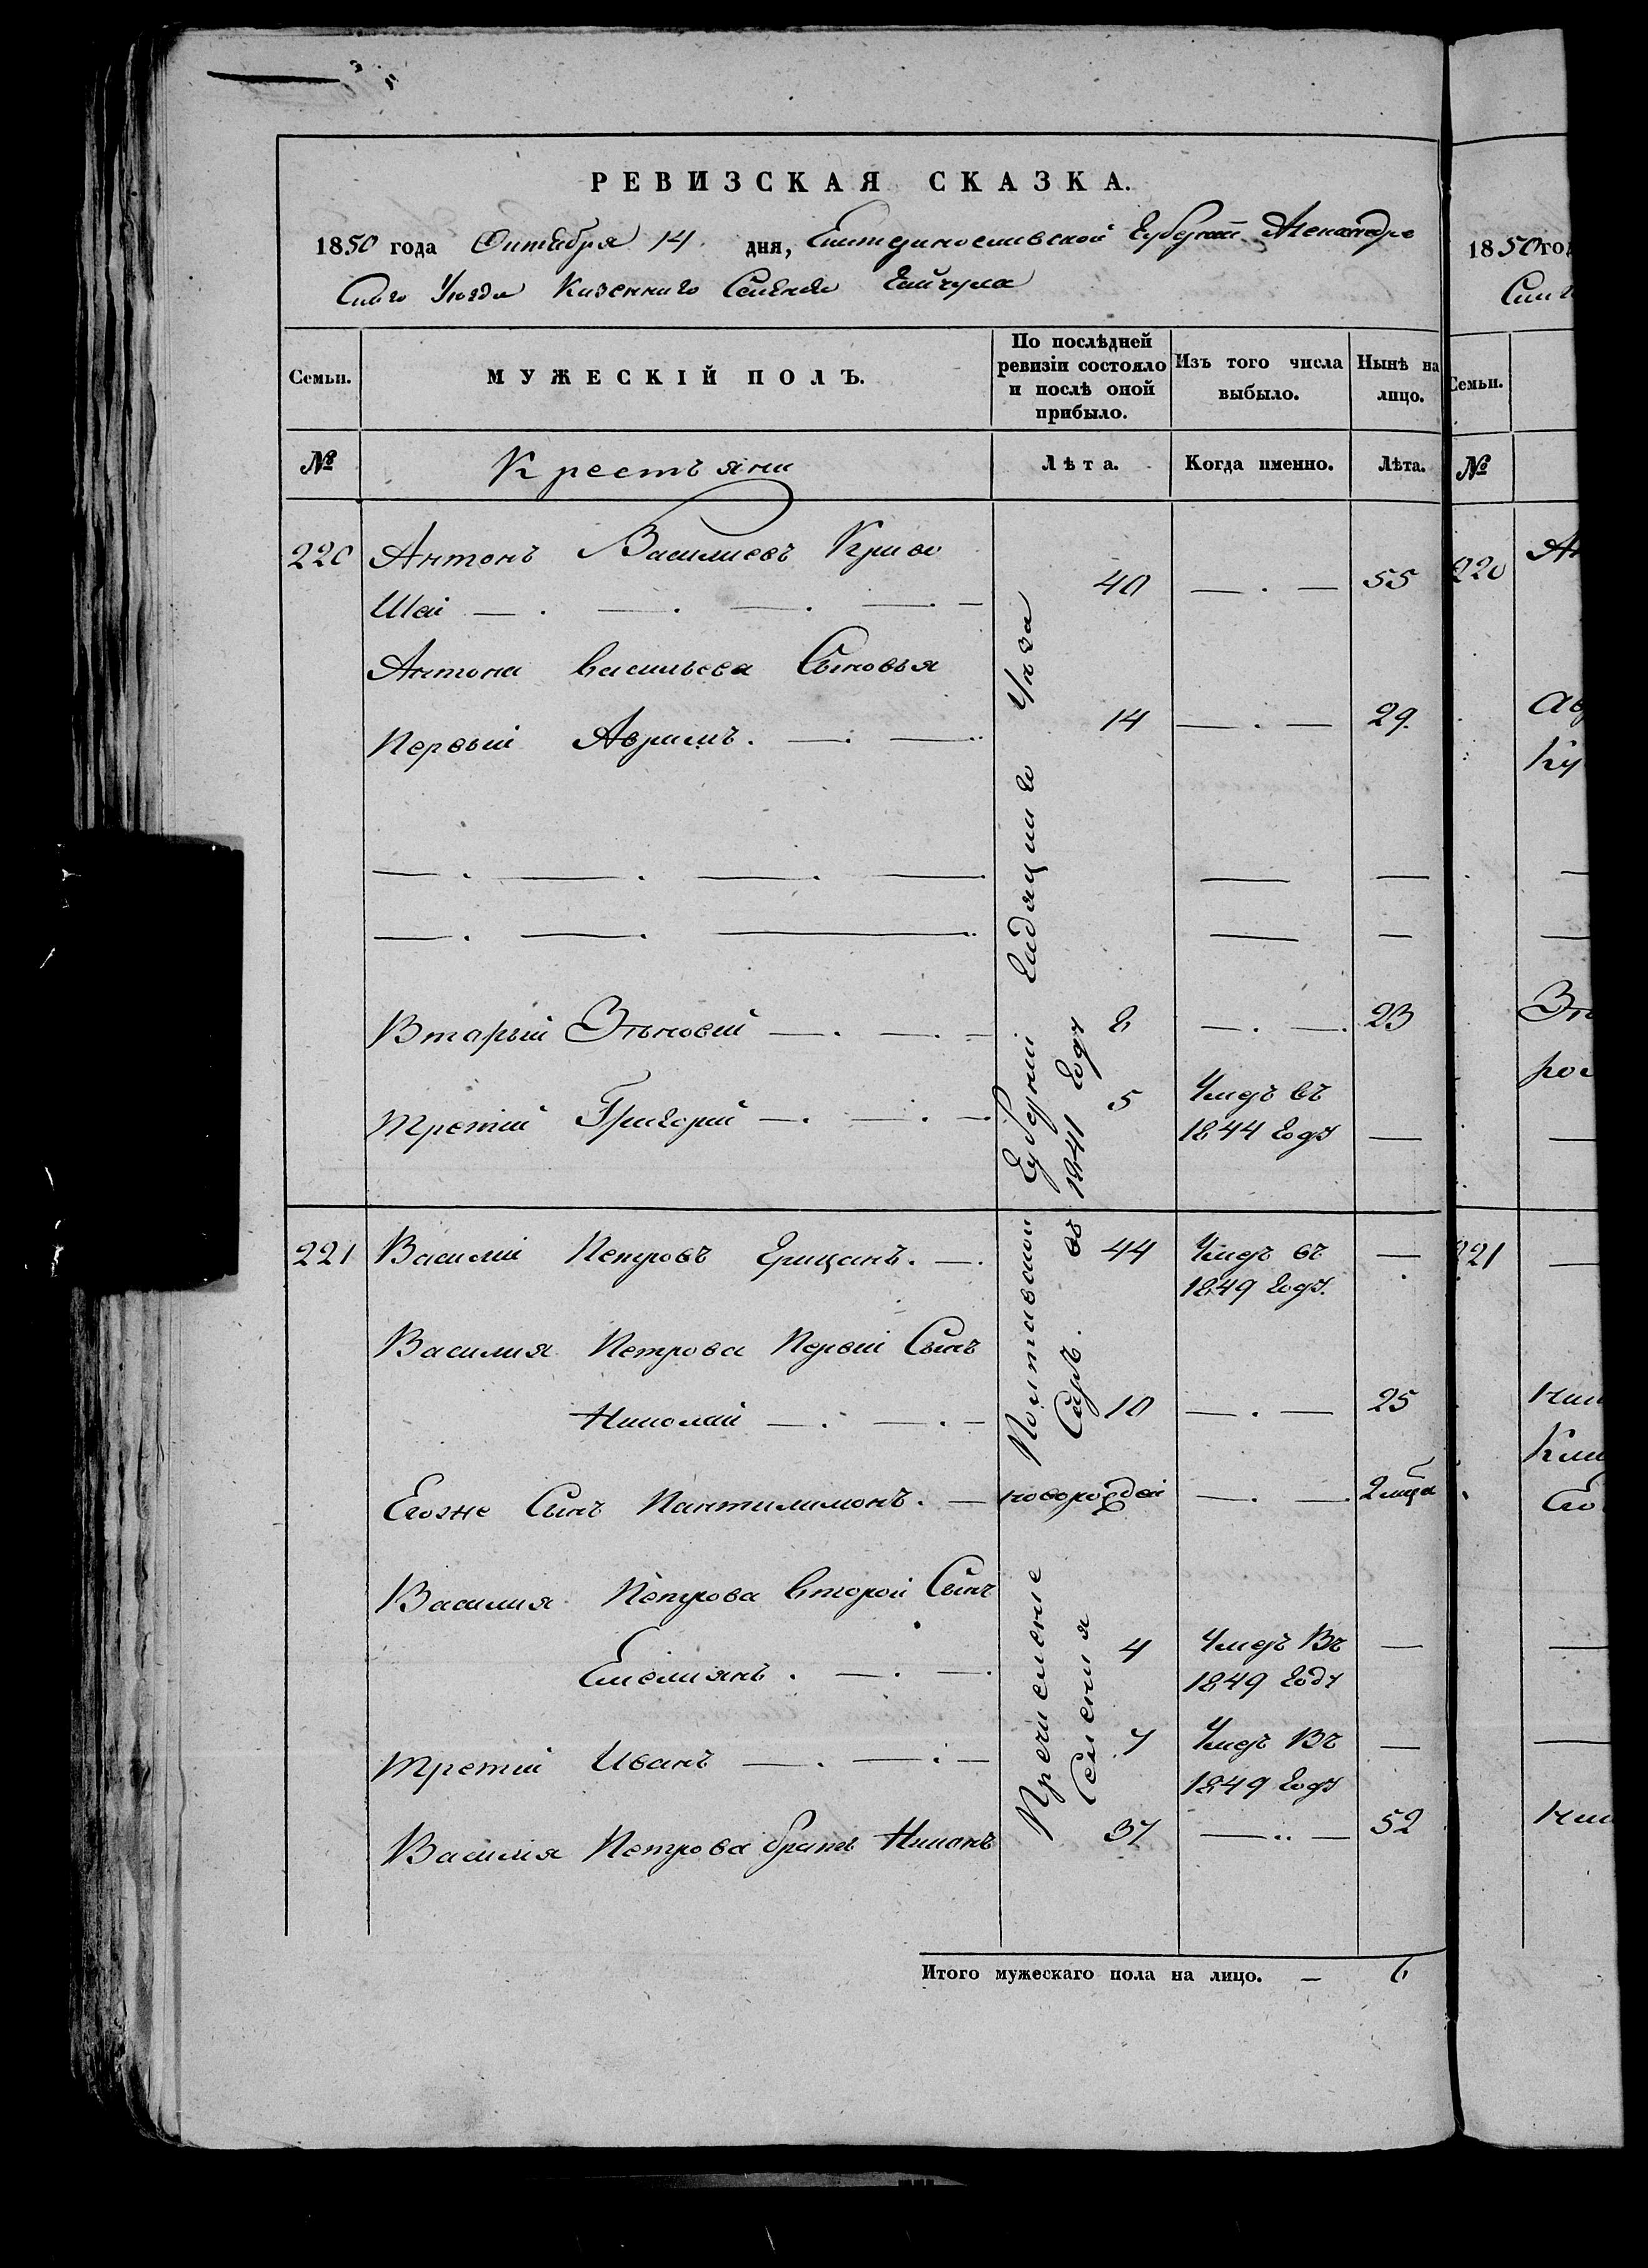 РЕВИЗСКАЯ СКАЗКА.
1850 года Октября 14 дня, Екатеринославской Губерніи Александро
Скаго Уѣзда Казеннаго Селенія Гайчула
Семьи.
МУЖЕСКІЙ ПОЛЪ.
По послѣдней
ревизіи состояло
и послѣ оной
прибыло.
Изъ того числа
выбыло.
Нынѣ на
лицо.
№
Крестъяни
Лѣта.
Когда именно.
Лѣта.
220 Антонъ Василиевъ Криво
Шаи — . — . — . — . — 40 — . — 55
Антона Васильева Сыновья
Первый Аврамъ . — . — . 14 — . — 29.
Вторый Зѣновій — . — . — 8 — . — . 23
Третій Григорій — . — . — 5 Умеръ въ
1844 году —
221 Василій Петровъ Грицанъ . — . 44 Умеръ въ —
1849 году.
Василия Петрова Первый Сынъ
Николай — . — . — 10 — . — 25
Егоже Сынъ Пантилимонъ . — новорожден — . — . 2 мца
Василия Петрова Второй Сынъ
Емелиянъ . — . — . 4 Умеръ Въ —
1849 году
Третій Иванъ — . — . — 7 Умеръ Въ —
1849 году
Василия Петрова братъ Никонъ 37 — .. — 52
Причислене Полтавской Губерніи Гадяцкаго Уѣза
Селения Саръ. въ 1841 году
Итого мужескаго пола на лицо. — 6
1850 год
Скаг
Семьи.
№
220 Ан
221